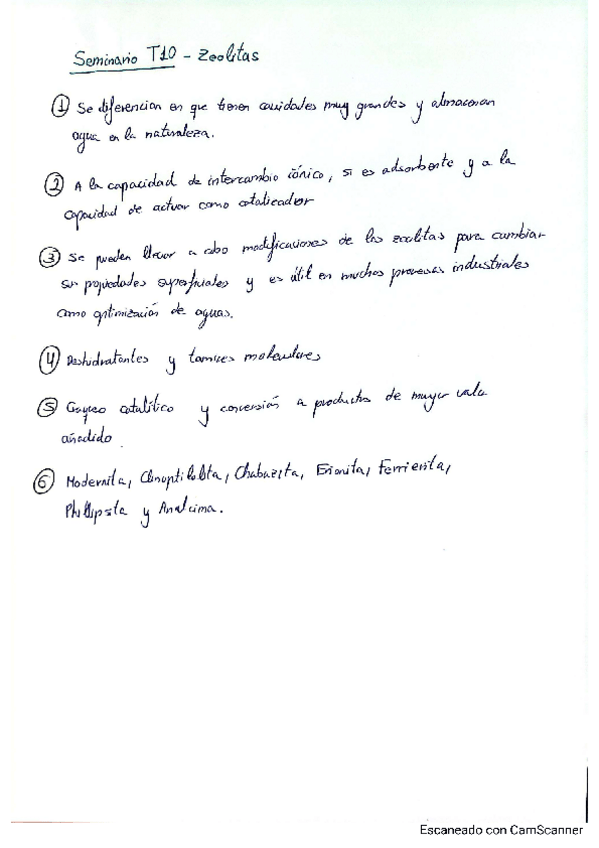 Seminario T10 - Zeolitas
① Se diferencian en que tienen cavidades muy grandes y almacenan
agua en la naturaleza.
② A la capacidad de intercambio iónico, si es adsorbente y a la
capacidad de actuar como catalizador
③ Se pueden llevar a cabo modificaciones de las zeolitas para cambiar
sus propiedades superficiales y es útil en muchos procesos industriales
como optimización de aguas.
④ Deshidratantes y tamices moleculares
⑤ Craqueo catalítico y conversión a productos de mayor valor
añadido.
⑥ Modernita, Clinoptilolita, Chabazita, Erionita, Ferrierita,
Phillipsita y Analcima.
Escaneado con CamScanner